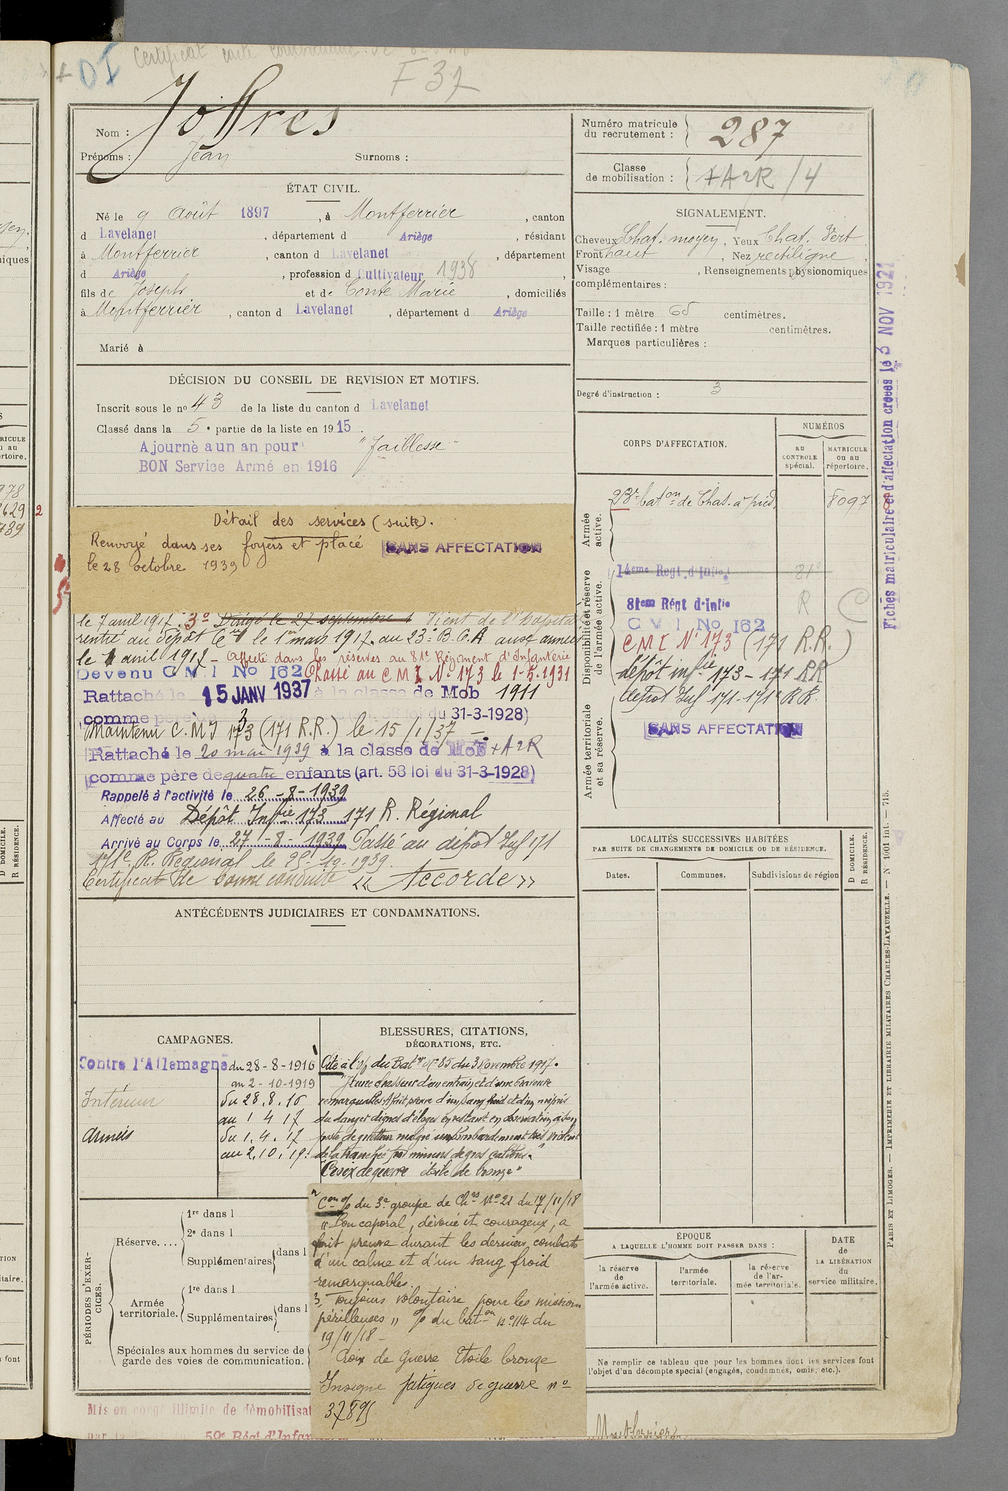 DI Certificat carte combattant
F 37
Nom : Joffres
Prénoms : Jean Surnoms :
ÉTAT CIVIL.
Né le 9 août 1897, à Montferrier, canton
d Lavelanet, département d Ariège, résidant
à Montferrier, canton d Lavelanet, département
d Ariège, profession d Cultivateur 1938
fils de Joseph et de Conte Marie, domiciliés
à Montferrier, canton d Lavelanet, département d Ariège
Marié à
DÉCISION DU CONSEIL DE REVISION ET MOTIFS.
Inscrit sous le n° 43 de la liste du canton d Lavelanet
Classé dans la 5e partie de la liste en 1915.
Ajourné a un an pour "faiblesse"
BON Service Armé en 1916
Détail des services (suite).
Renvoyé dans ses foyers et placé SANS AFFECTATION
le 28 octobre 1939
le 7 avril 1917. 3° Dirigé le 27 septembre
rentré au dépôt le 1er mars 1917. au 23e B.C.A aux armées
le 1 avril 1917 - Affecté dans les réserves au 81e Régiment d'Infanterie
Devenu C M I No 162 Classé au C M I N° 173 le 1-5.1931
Rattaché le 15 JANV 1937 à la classe de Mob 1911
comme père de 3 31-3-1928)
Maintenu C.M.I 173 (171 R.R.) le 15/1/37 -
Rattaché le 20 mai 1939 à la classe de Mob + A2R
comme père de quatre enfants (art. 58 loi du 31-3-1928)
Rappelé à l'activité le 26-8-1939
Affecté au Dépôt Infie 173 171 R. Régional
Arrivé au Corps le 27-8-1939 Passé au dépôt Inf 171
171e R. Régional le
Certificat de bonne conduite « Accordé »
ANTÉCÉDENTS JUDICIAIRES ET CONDAMNATIONS.
CAMPAGNES.
Contre l'Allemagne du 28-8-1916
au 2-10-1919
Intérieur du 28.8.16
au 1 4 17
Armées du 1.4.17
au 2.10.19
BLESSURES, CITATIONS,
DÉCORATIONS, ETC.
Cité à l'o/ du Baton n° 85 du 3 Novembre 1917.
"Jeune chasseur d'un entrain et d'une bravoure
remarquables. A fait preuve d'un sang froid et d'un mépris
du danger dignes d'éloges en restant en observation à son
poste de guetteur malgré un bombardement très violent
de la tranchée par minens de gros calibres."
Croix de guerre étoile de bronze"
o/ du 3e groupe de Chrs N° 21 du 17/11/18
"Bon caporal, dévoué et courageux, a
fait preuve durant les derniers combats
d'un calme et d'un sang froid
remarquables.
3, Toujours volontaire pour les missions
périlleuses" o/ du baton n° 114 du
19/11/18 -
Croix de Guerre Etoile bronze
Insigne fatigues de guerre n°
37895
PÉRIODES D'EXERCICES.
Réserve....
1re dans l
2e dans l
Supplémentaires dans l
Armée
territoriale.
1re dans l
Supplémentaires dans l
Spéciales aux hommes du service de
garde des voies de communication.
Mis en congé illimité de démobilisat
59e Régt d'Infan
Numéro matricule
du recrutement : 287
Classe
de mobilisation : + A2R / 4
SIGNALEMENT.
Cheveux Chat. moyen, Yeux Chat. Vert
Front haut, Nez rectiligne,
Visage , Renseignements physionomiques
complémentaires :
Taille : 1 mètre 65 centimètres.
Taille rectifiée : 1 mètre centimètres.
Marques particulières :
Degré d'instruction : 3
CORPS D'AFFECTATION.
NUMÉROS
AU CONTROLE spécial.
MATRICULE OU AU répertoire.
Armée active.
23e baton de Chas. à pied 8097
Disponibilité et réserve de l'armée active.
14eme Regt. d'Infie
81em Régt d'Infie R
C M I No 162
C M I N° 173 (171 R.R.)
dépôt infie 173 - 171 RR
depot Inf 171-171e R R.
Armée territoriale et sa réserve.
SANS AFFECTATION
LOCALITÉS SUCCESSIVES HABITÉES
PAR SUITE DE CHANGEMENTS DE DOMICILE OU DE RÉSIDENCE.
Dates. Communes. Subdivisions de région
D DOMICILE. R RÉSIDENCE.
ÉPOQUE
A LAQUELLE L'HOMME DOIT PASSER DANS :
la réserve de l'armée active.
l'armée territoriale.
la réserve de l'armée territoriale.
DATE de LA LIBÉRATION du service militaire.
Ne remplir ce tableau que pour les hommes dont les services font
l'objet d'un décompte spécial (engagés, condamnés, omis, etc.).
Montferrier
Fiches matriculaire et d'affectation créées le 3 NOV 1921
PARIS ET LIMOGES. — IMPRIMERIE ET LIBRAIRIE MILITAIRES CHARLES-LAVAUZELLE. — N° 1001 int. — 715.